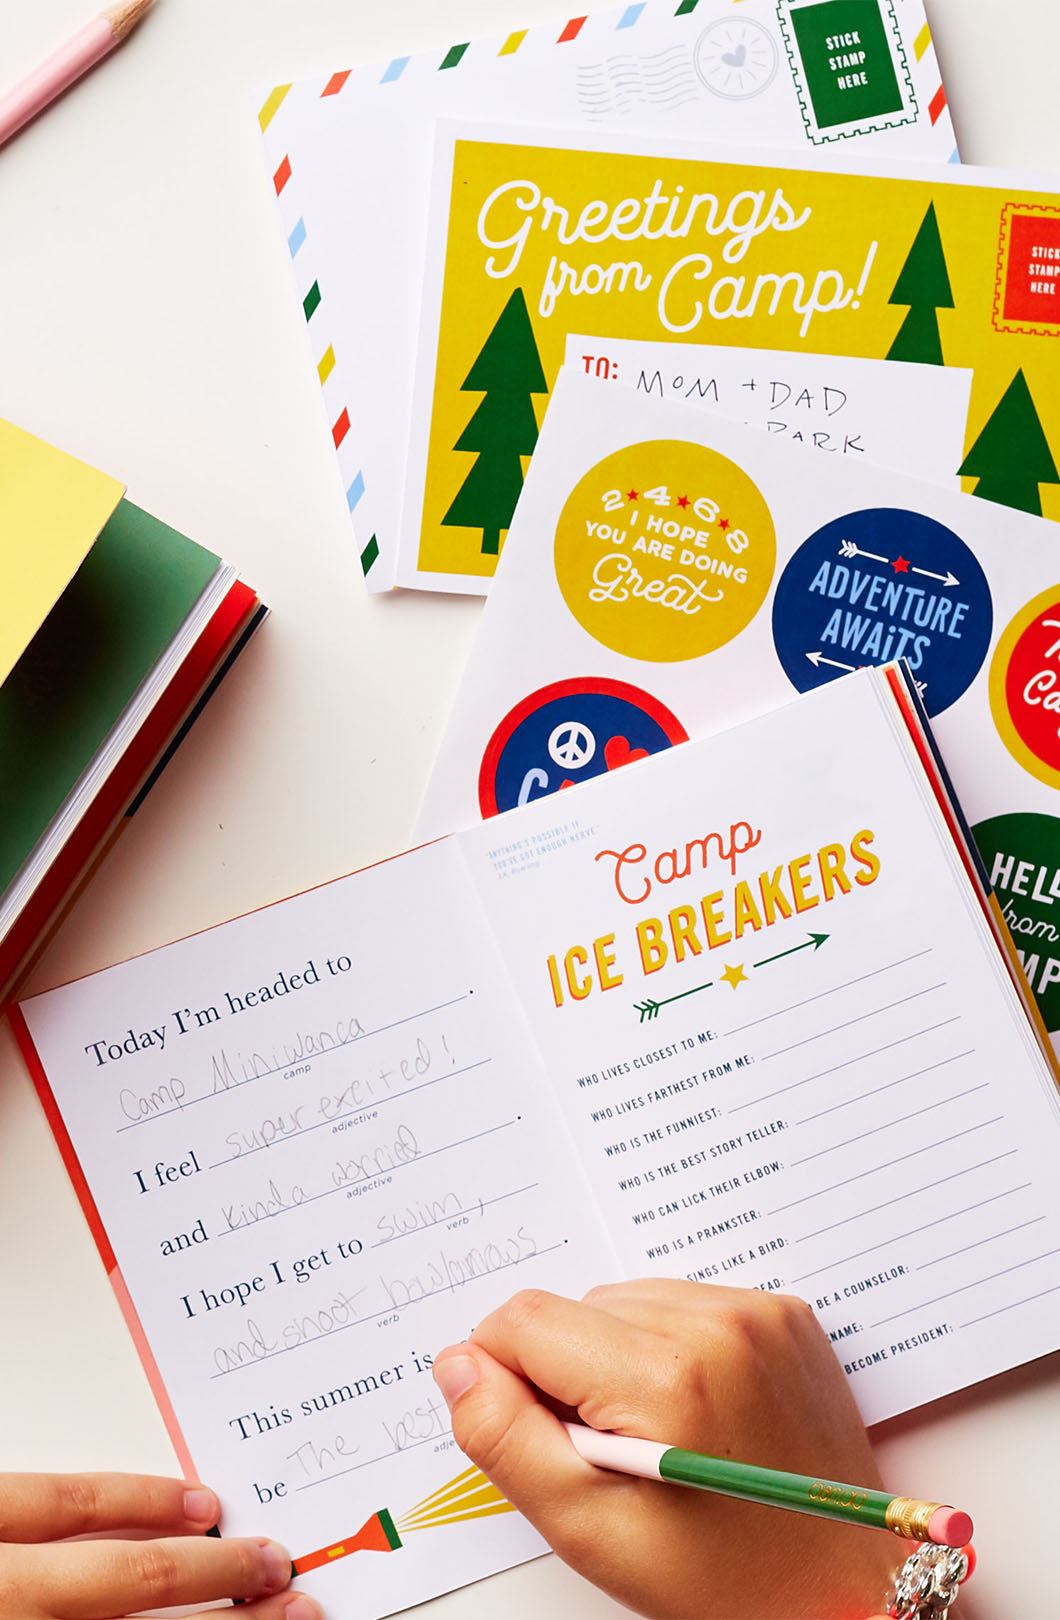 STICK
STAMP
HERE
Greetings
from Camp!
STICK
STAMP
HERE
TO: MOM + DAD
PARK
2 ★ 4 ★ 6 ★ 8
I HOPE
YOU ARE DOING
Great
ADVENTURE
AWAiTS
HELL
from
MP
"ANYTHING'S POSSIBLE IF
YOU'VE GOT ENOUGH NERVE."
J.K. Rowling
Camp
ICE BREAKERS
WHO LIVES CLOSEST TO ME:
WHO LIVES FARTHEST FROM ME:
WHO IS THE FUNNIEST:
WHO IS THE BEST STORY TELLER:
WHO CAN LICK THEIR ELBOW:
WHO IS A PRANKSTER:
SINGS LIKE A BIRD:
EAD:
BE A COUNSELOR:
NAME:
BECOME PRESIDENT:
Today I'm headed to
Camp Miniwanca.
camp
I feel super excited!
adjective
and kinda worried.
adjective
I hope I get to swim,
verb
and shoot bow/arrows.
verb
This summer is
be The best
adje